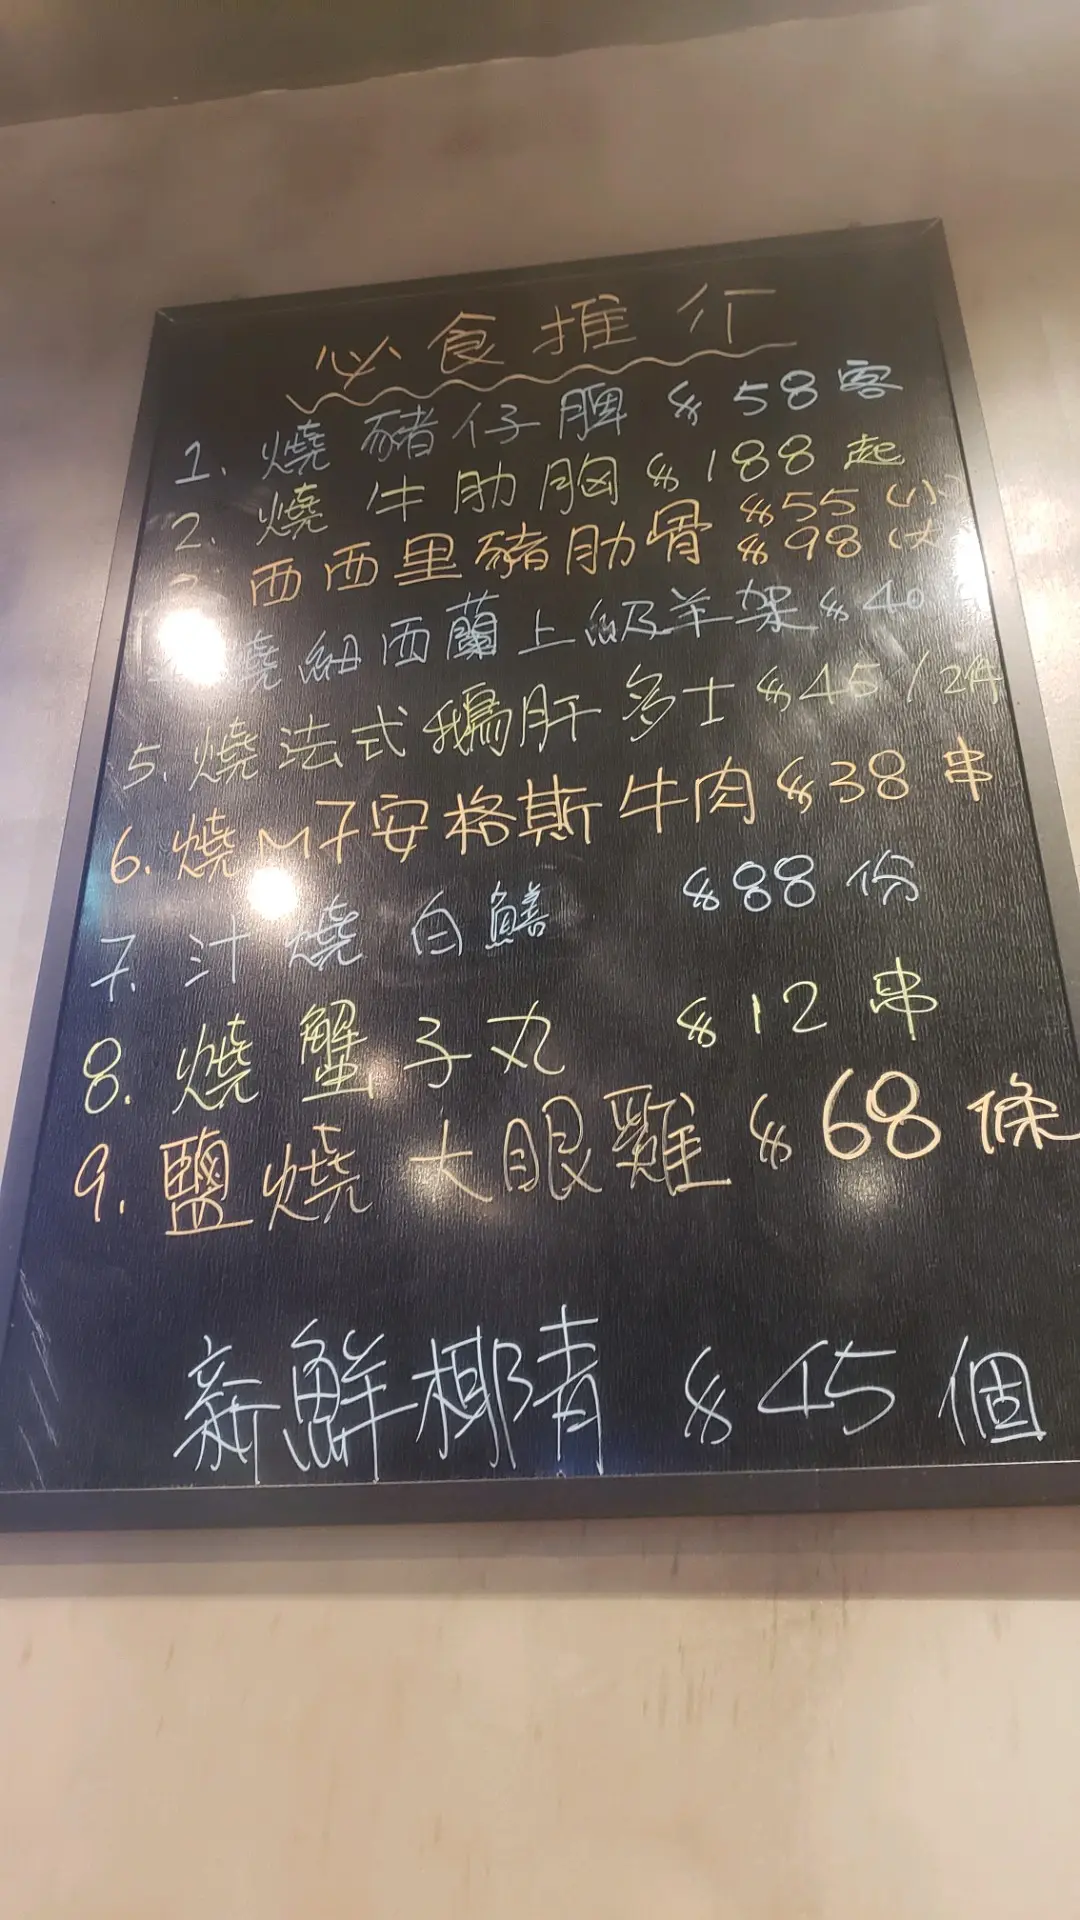 必食推介
1. 燒豬仔脾 $58客
2. 燒牛肋胸 $188起
西西里豬肋骨 $55 (小) $98 (大
燒紐西蘭上級羊架 $40
5. 燒法式鵝肝多士 $45/2件
6. 燒M7安格斯牛肉 $38串
7. 汁燒白鱔 $88份
8. 燒蟹子丸 $12串
9. 鹽燒大眼雞 $68條
新鮮椰青 $45個